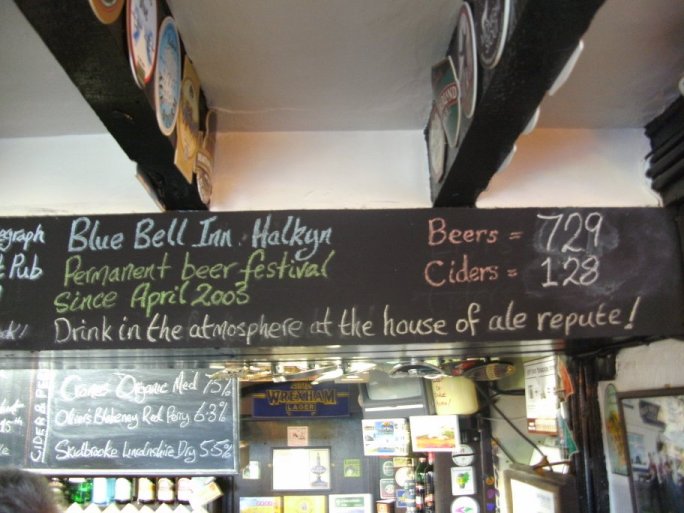 egraph
Pub
Blue Bell Inn. Halkyn
Permanent beer festival
since April 2003
Drink in the atmosphere at the house of ale repute!
Beers = 729
Ciders = 128
CIDER & PE
Organic Med 7.5%
Blakeney Red Perry 6.3%
Skidbrooke Lincolnshire Dry 5.5%
WREXHAM
LAGER